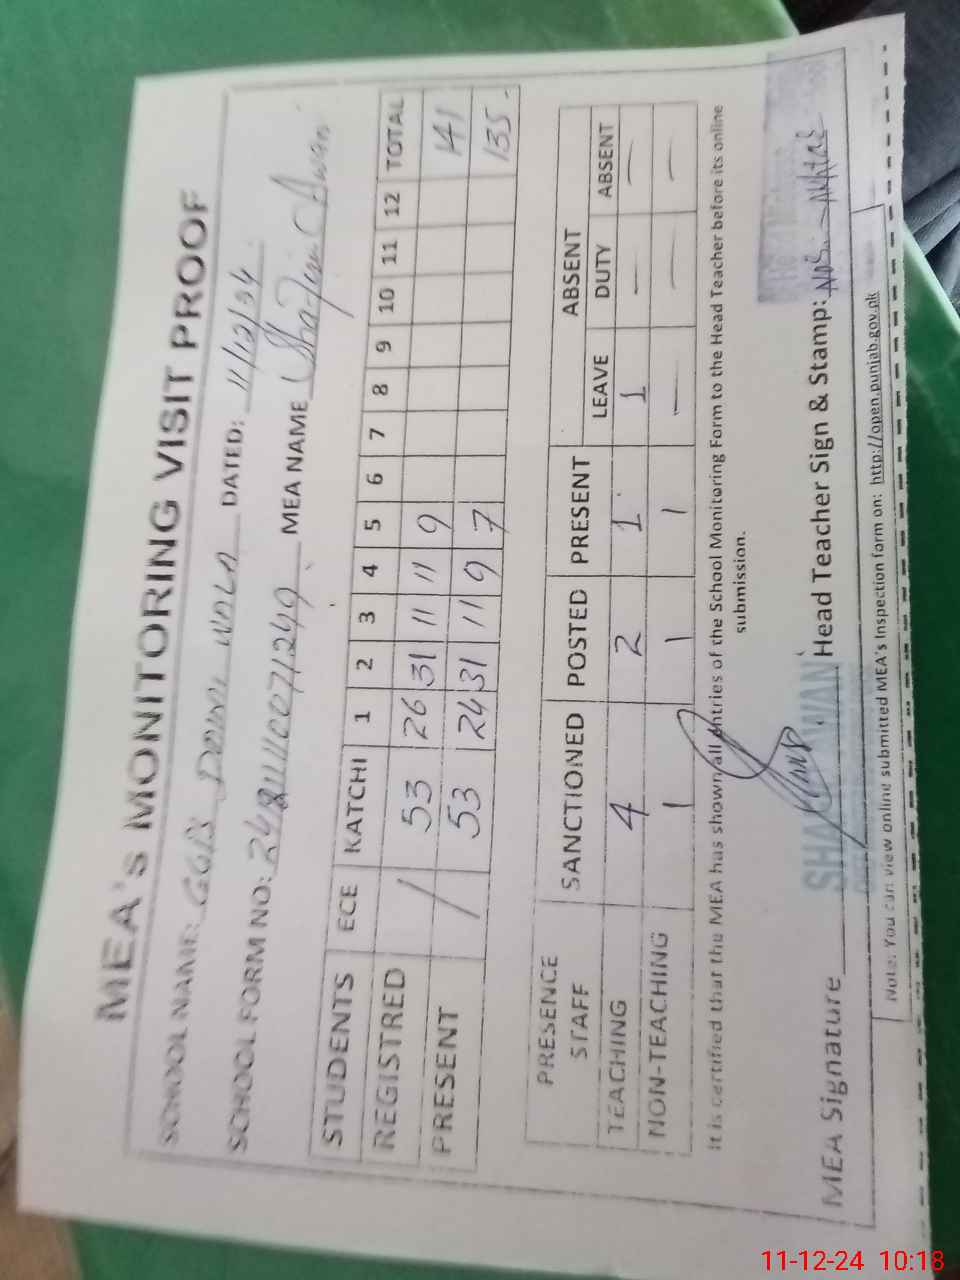 MEA's MONITORING VISIT PROOF
SCHOOL NAME: WALA DATED: 11/12/24
SCHOOL FORM NO: MEA NAME Awan
STUDENTS ECE KATCHI 1 2 3 4 5 6 7 8 9 10 11 12 TOTAL
REGISTRED / 53 26 31 11 11 9 141
PRESENT / 53 24 31 11 9 7 135
PRESENCE STAFF SANCTIONED POSTED PRESENT ABSENT
LEAVE DUTY ABSENT
TEACHING 4 2 1 1 — —
NON-TEACHING 1 1 1 — — —
It is certified that the MEA has shown all entries of the School Monitoring Form to the Head Teacher before its online
submission.
MEA Signature Head Teacher Sign & Stamp: Akhtar
Note: You can view online submitted MEA's Inspection form on: http://open.punjab.gov.pk
11-12-24 10:18